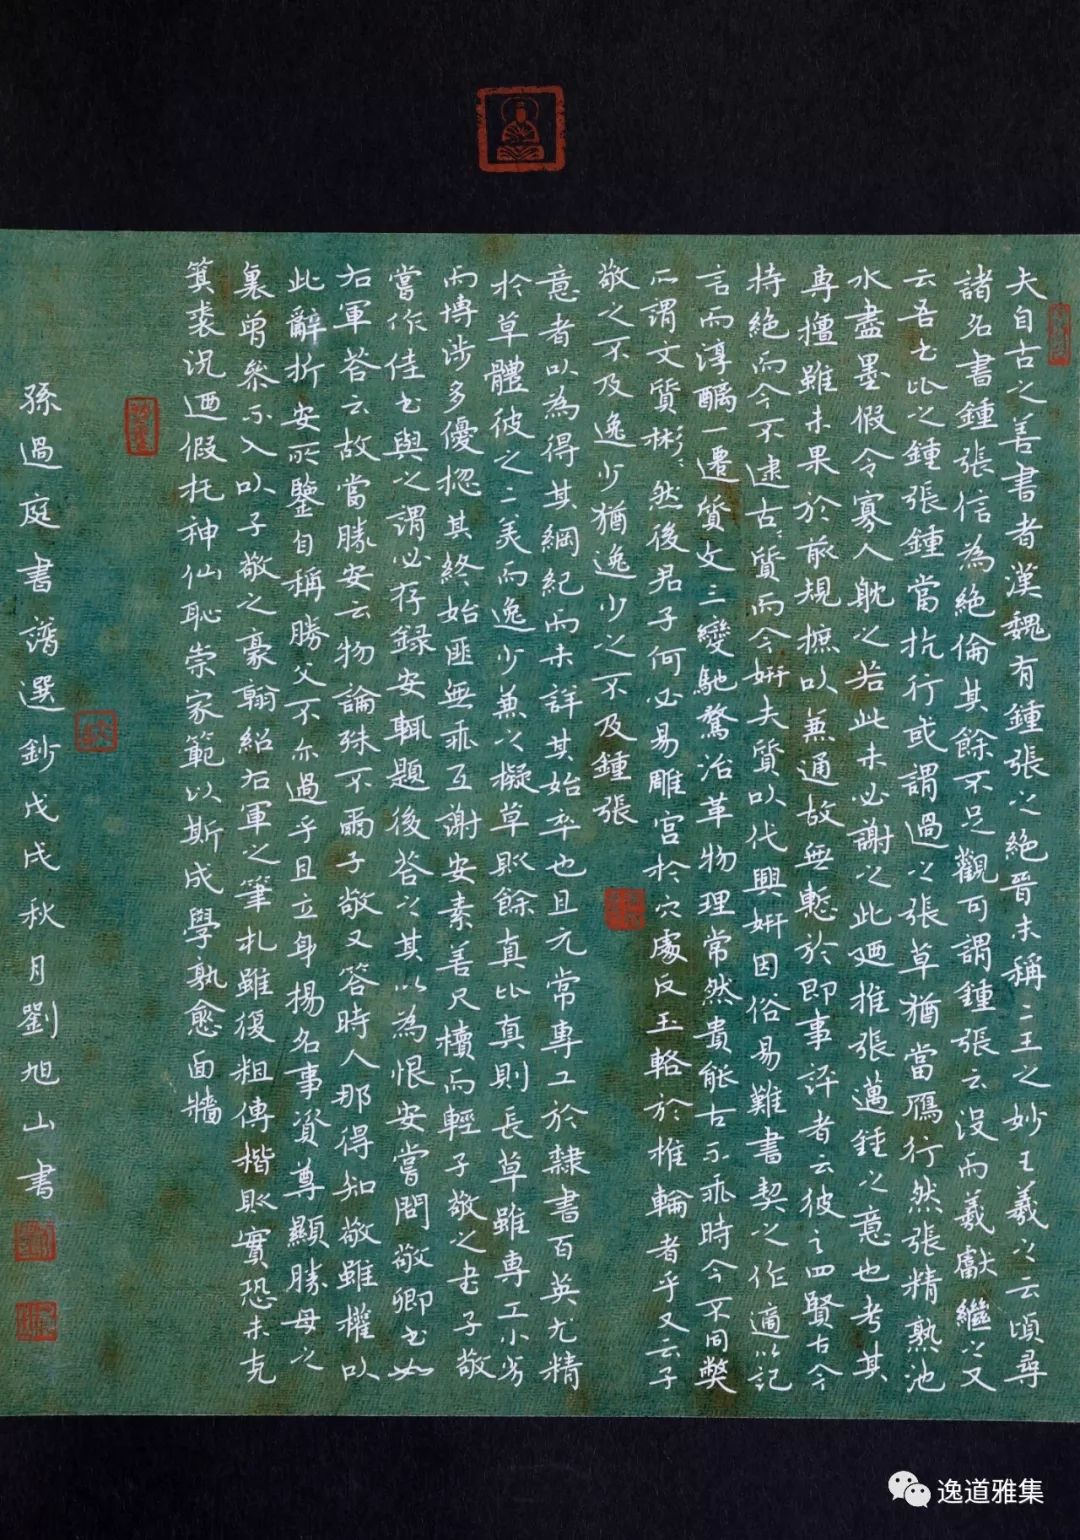 夫自古之善書者漢魏有鍾張之絕晉末稱二王之妙王羲之云頃尋
諸名書鍾張信為絕倫其餘不足觀可謂鍾張云沒而羲獻繼之又
云吾書比之鍾張鍾當抗行或謂過之張草猶當鴈行然張精熟池
水盡墨假令寡人耽之若此未必謝之此廼推張邁鍾之意也考其
專擅雖未果於前規摭以兼通故無慙於即事評者云彼之四賢古今
持絕而今不逮古〻質而今妍夫質以代興妍因俗易難書契之作適以記
言而淳醨一遷質文三變馳騖沿革物理常然貴能古不乖時今不同獘
所謂文質彬〻然後君子何必易雕宮於穴處反玉輅於椎輪者乎又云子
敬之不及逸少猶逸少之不及鍾張
意者以為得其綱紀而未詳其始卒也且元常專工於隸書百英尤精
於草體彼之二美而逸少兼之擬草則餘真比真則長草雖專工小劣
而博涉多優揔其終始匪無乖互謝安素善尺櫝而輕子敬之書子敬
嘗作佳書與之謂必存錄安輒題後答之甚以為恨安嘗問敬卿書如
右軍答云故當勝安云物論殊不爾子敬又答時人那得知敬雖權以
此辭折安所鑒自稱勝父不亦過乎且立身揚名事資尊顯勝母之
裏曾參不入以子敬之豪翰紹右軍之筆札雖復粗傳楷則實恐未克
箕裘況迺假托神仙恥崇家範以斯成學孰愈面牆
孫過庭書譜選鈔戊戌秋月劉旭山書
逸道雅集